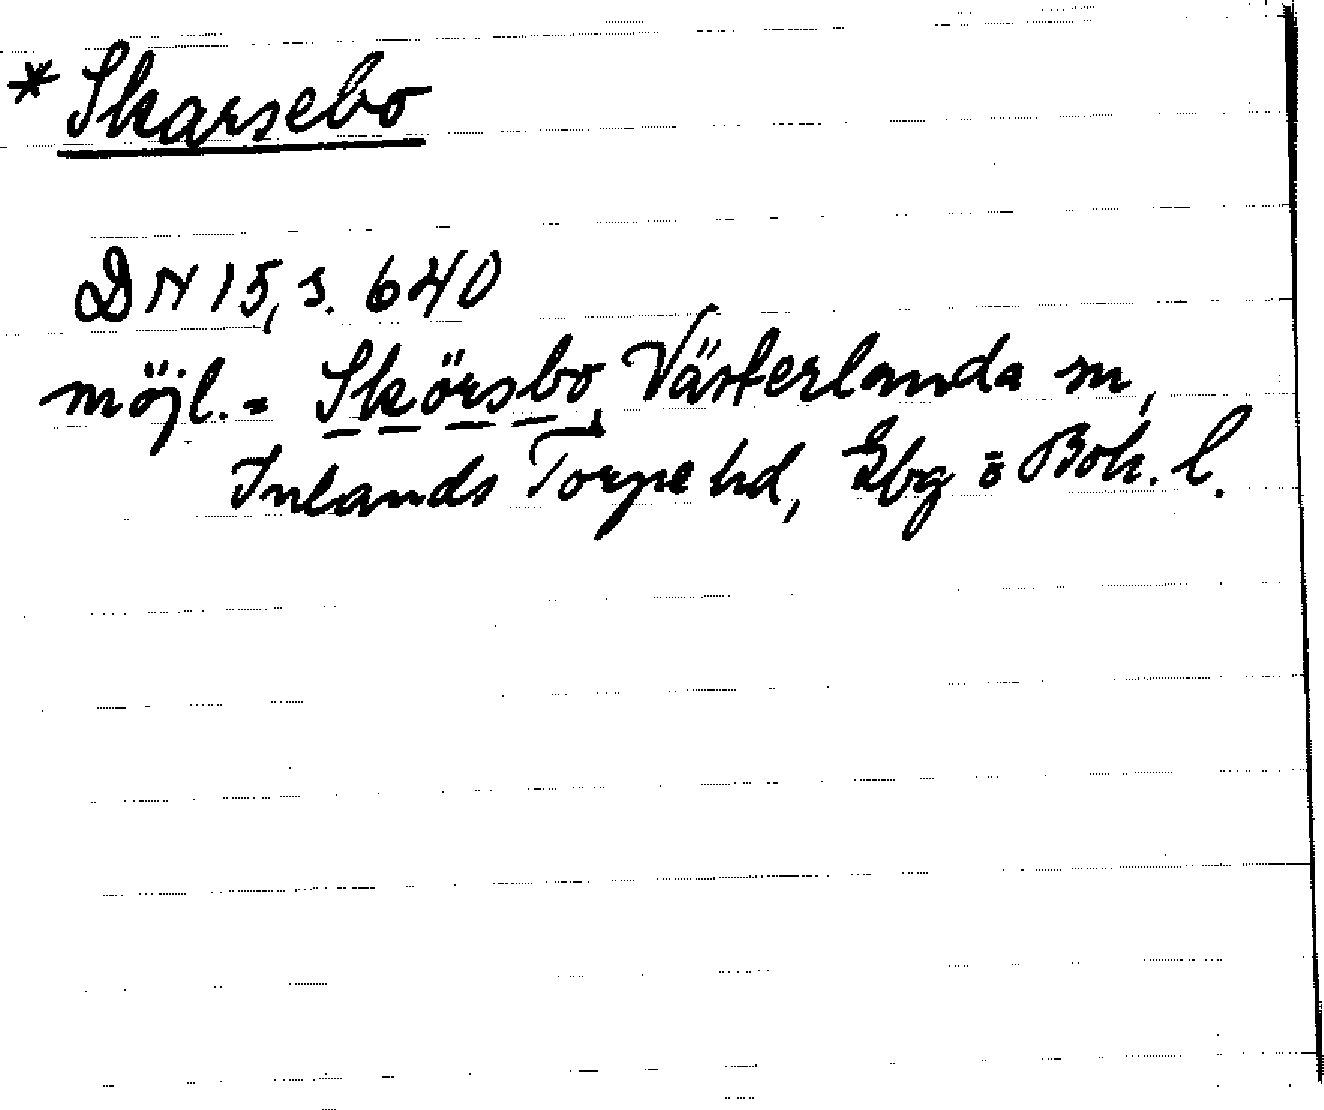 * Skarsebo
DN 15, s. 640
möjl. = Skörsbo, Västerlanda sn,
Inlands Torpe hd, Gbg o Boh. l.